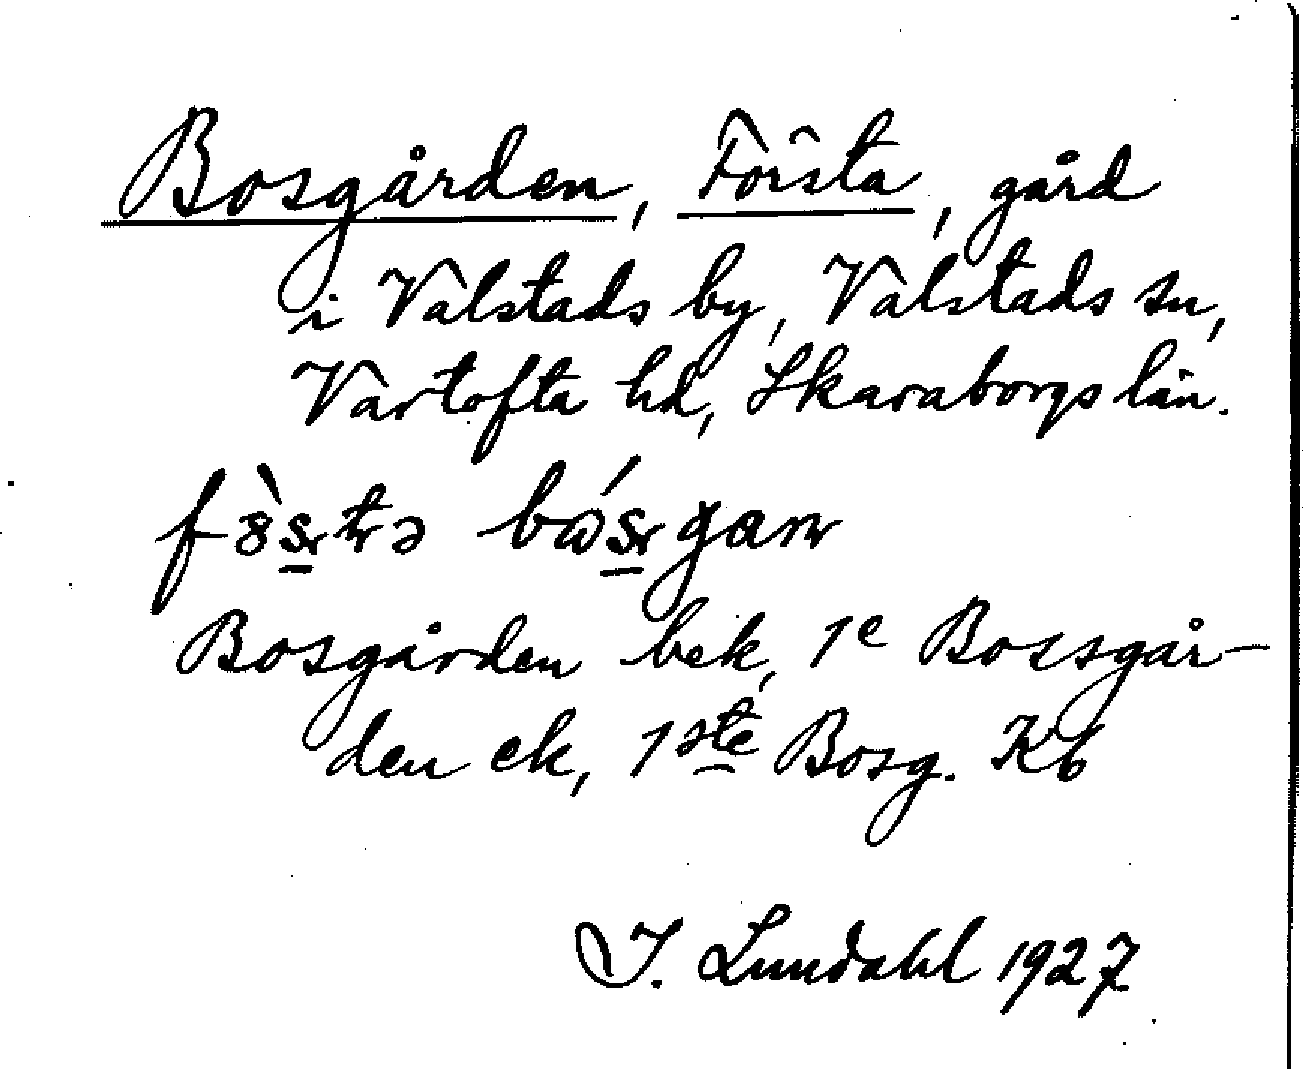 Bosgården, Första, gård
i Valstads by, Valstads sn,
Vartofta hd, Skaraborgs län.
Bosgården bek, 1e Bossgår-
den ek, 1ste Bosg. Kb
I. Lundahl 1927